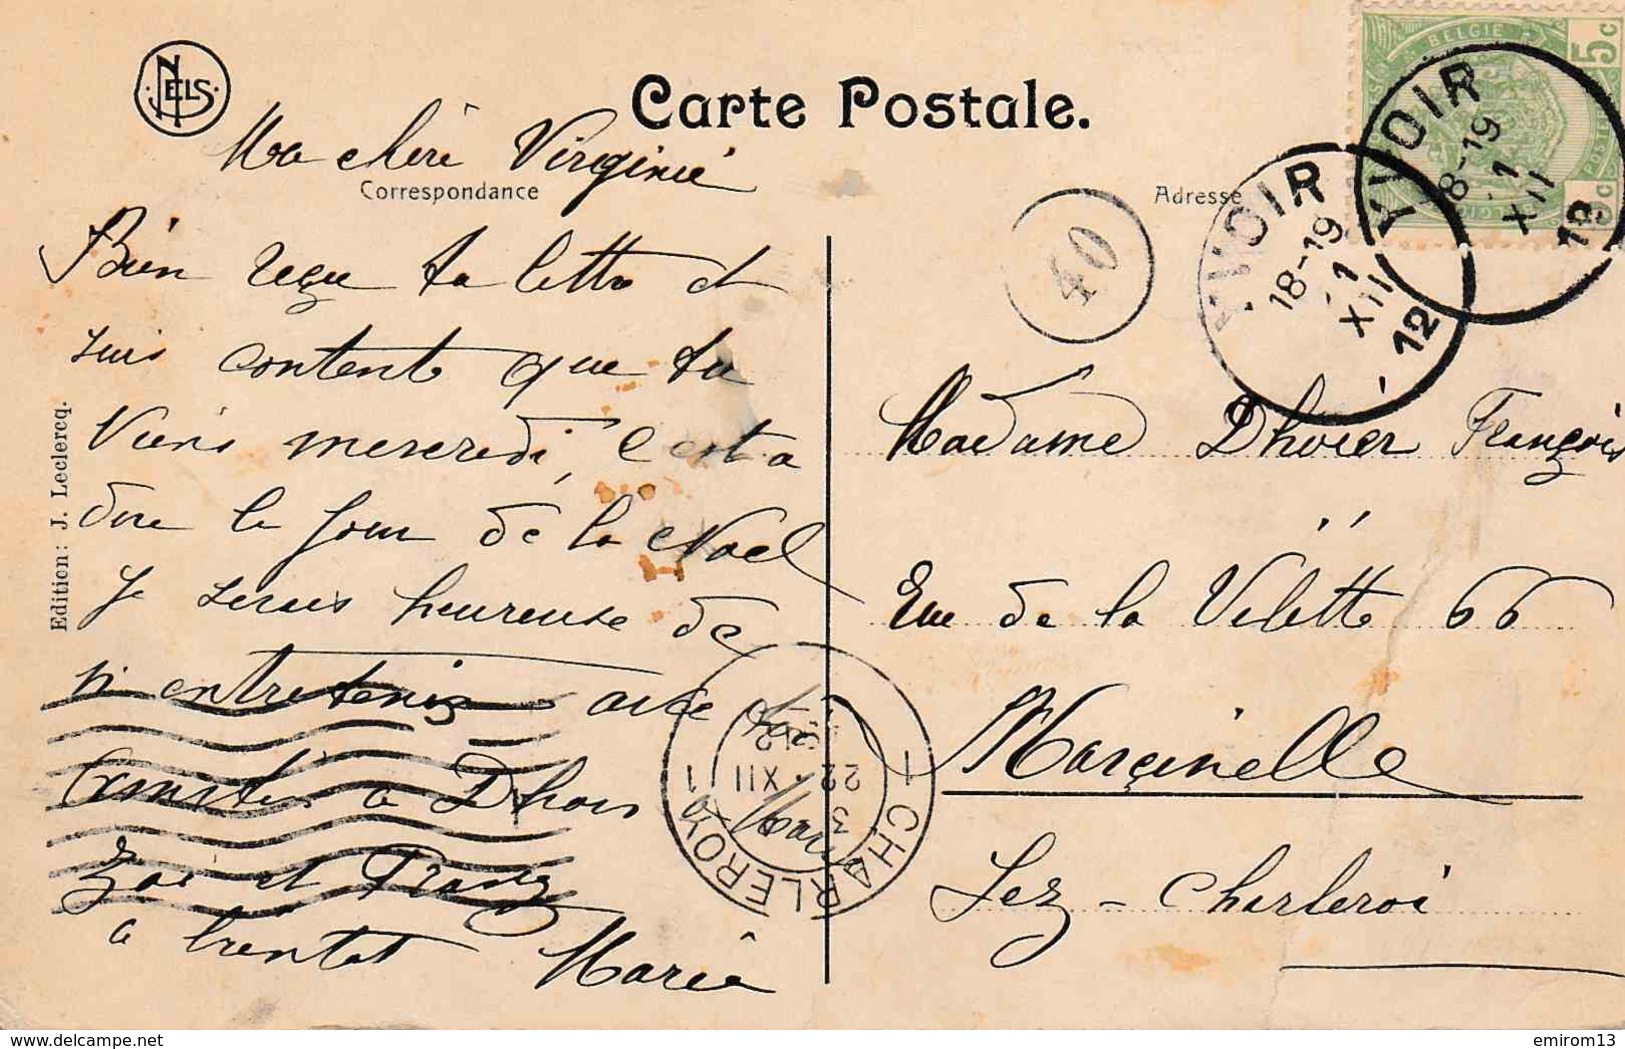 NELS
Carte Postale.
Ma chère Virginie
Correspondance
Bien reçu ta lettre et
suis content que tu
Viens mercredi, c'est a
dire le jour de la Noel
Je serais heureuse de
m'entretenir avec toi
Amitiés a Dhoir
Zoé et Franz
a bientot Marie
Mari
Edition: J. Leclercq.
Adresse
BELGIE
5c
POSTES
YVOIR
18-19
1
XII
12
YVOIR
18-19
1
XII
12
40
Madame Dhoier François
Rue de la Vilette 66
Marcinelle
Lez-Charleroi
CHARLEROY 1
3
22 XII
12
www.delcampe.net
emirom13